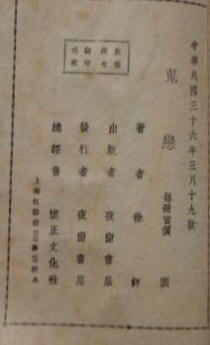 中華民國三十六年三月十九版
鬼戀
每冊實價 圓
版權所有
翻印必究
著者 徐訏
出版者 夜窗書屋
發行者 夜窗書屋
總經售 懷正文化社